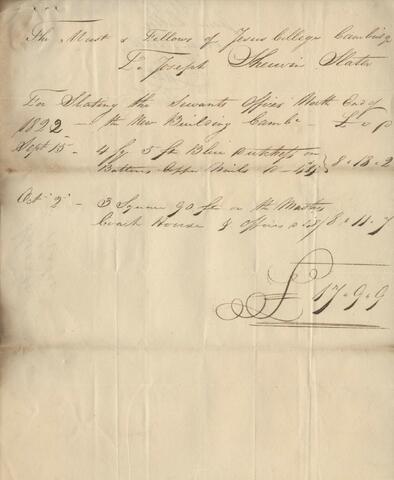 The Mast & Fellows of Jesus College Cambridge
To Joseph Sherwin Slater
For Slating the Servants Offices North End of
1822 - the New Building Cambe - £ s p
Sept 15 - 4 Sq 5 ft Blue on
Battens Copper Nails &c - 44/ } 8 - 18 - 2
Oct 2 - 3 Square 90 ft on the Masters
Coach House & Offices 8 - 11 - 7
£ 17 - 9 - 9